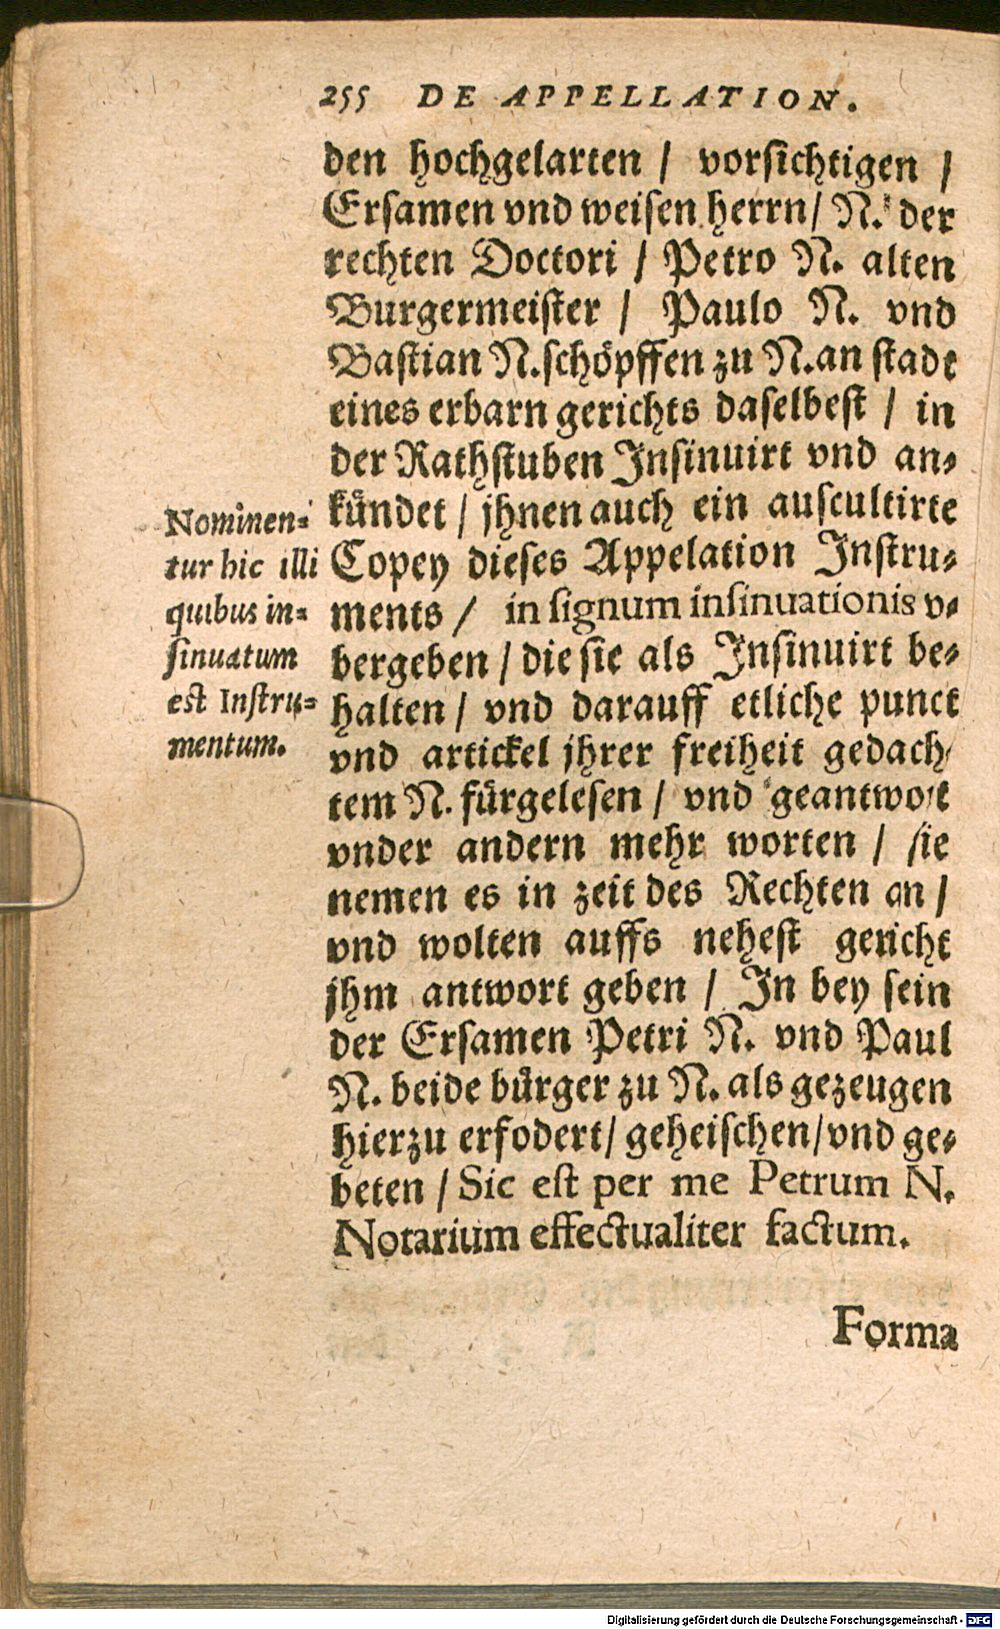 255 DE APPELLATION.
den hochgelarten / vorsichtigen /
Ersamen vnd weisen herrn / N. der
rechten Doctori / Petro N. alten
Burgermeister / Paulo N. vnd
Bastian N. schöpffen zu N. an stadt
eines erbarn gerichts daselbest / in
der Rathstuben Insinuirt vnd an⸗
kündet / jhnen auch ein auscultirte
Copey dieses Appelation Instru⸗
ments / in signum insinuationis v⸗
bergeben / die sie als Insinuirt be⸗
halten / vnd darauff etliche punct
vnd artickel jhrer freiheit gedach⸗
tem N. fürgelesen / vnd geantwort
vnder andern mehr worten / sie
nemen es in zeit des Rechten an /
vnd wolten auffs nehest gericht
jhm antwort geben / In bey sein
der Ersamen Petri N. vnd Paul
N. beide bürger zu N. als gezeugen
hierzu erfodert / geheischen / vnd ge⸗
beten / Sic est per me Petrum N.
Notarium effectualiter factum.
Nominen⸗
tur hic illi
quibus in⸗
sinuatum
est Instru⸗
mentum.
Forma
Digitalisierung gefördert durch die Deutsche Forschungsgemeinschaft - DFG